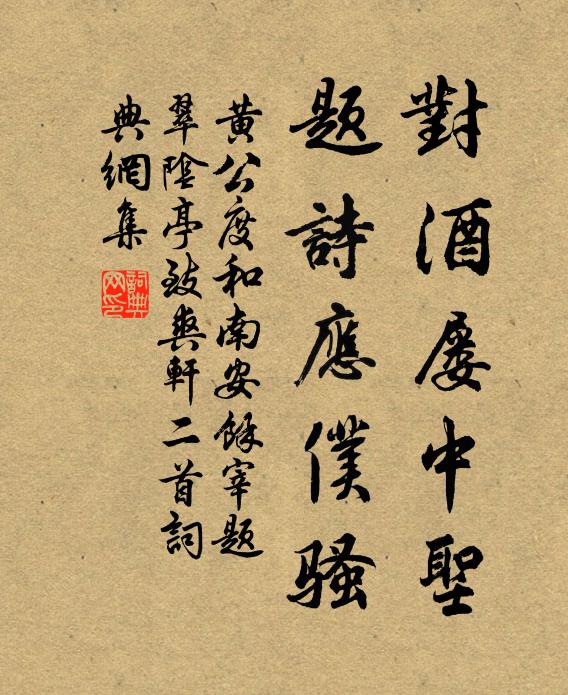 對酒屢中聖
題詩應僕騷
黃公度和南安餘宰題
翠陰亭致爽軒二首詞
典網集
詞典網印